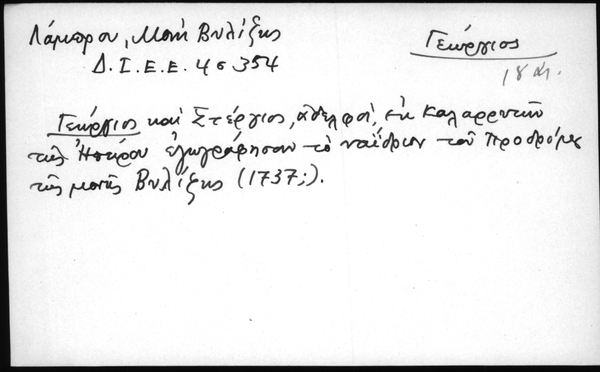 Λάμπρου, Μονὴ Βυλίζης
Γεώργιος
Δ.Ι.Ε.Ε. 4 σ 354
18 αι.
Γεώργιος καὶ Στέργιος, ἀδελφοί, ἐκ Καλαρρυτῶν
τῆς Ἠπείρου ἐζωγράφησαν τὸ ναΐδριον τοῦ Προδρόμου
τῆς μονῆς Βυλίζης (1737;).